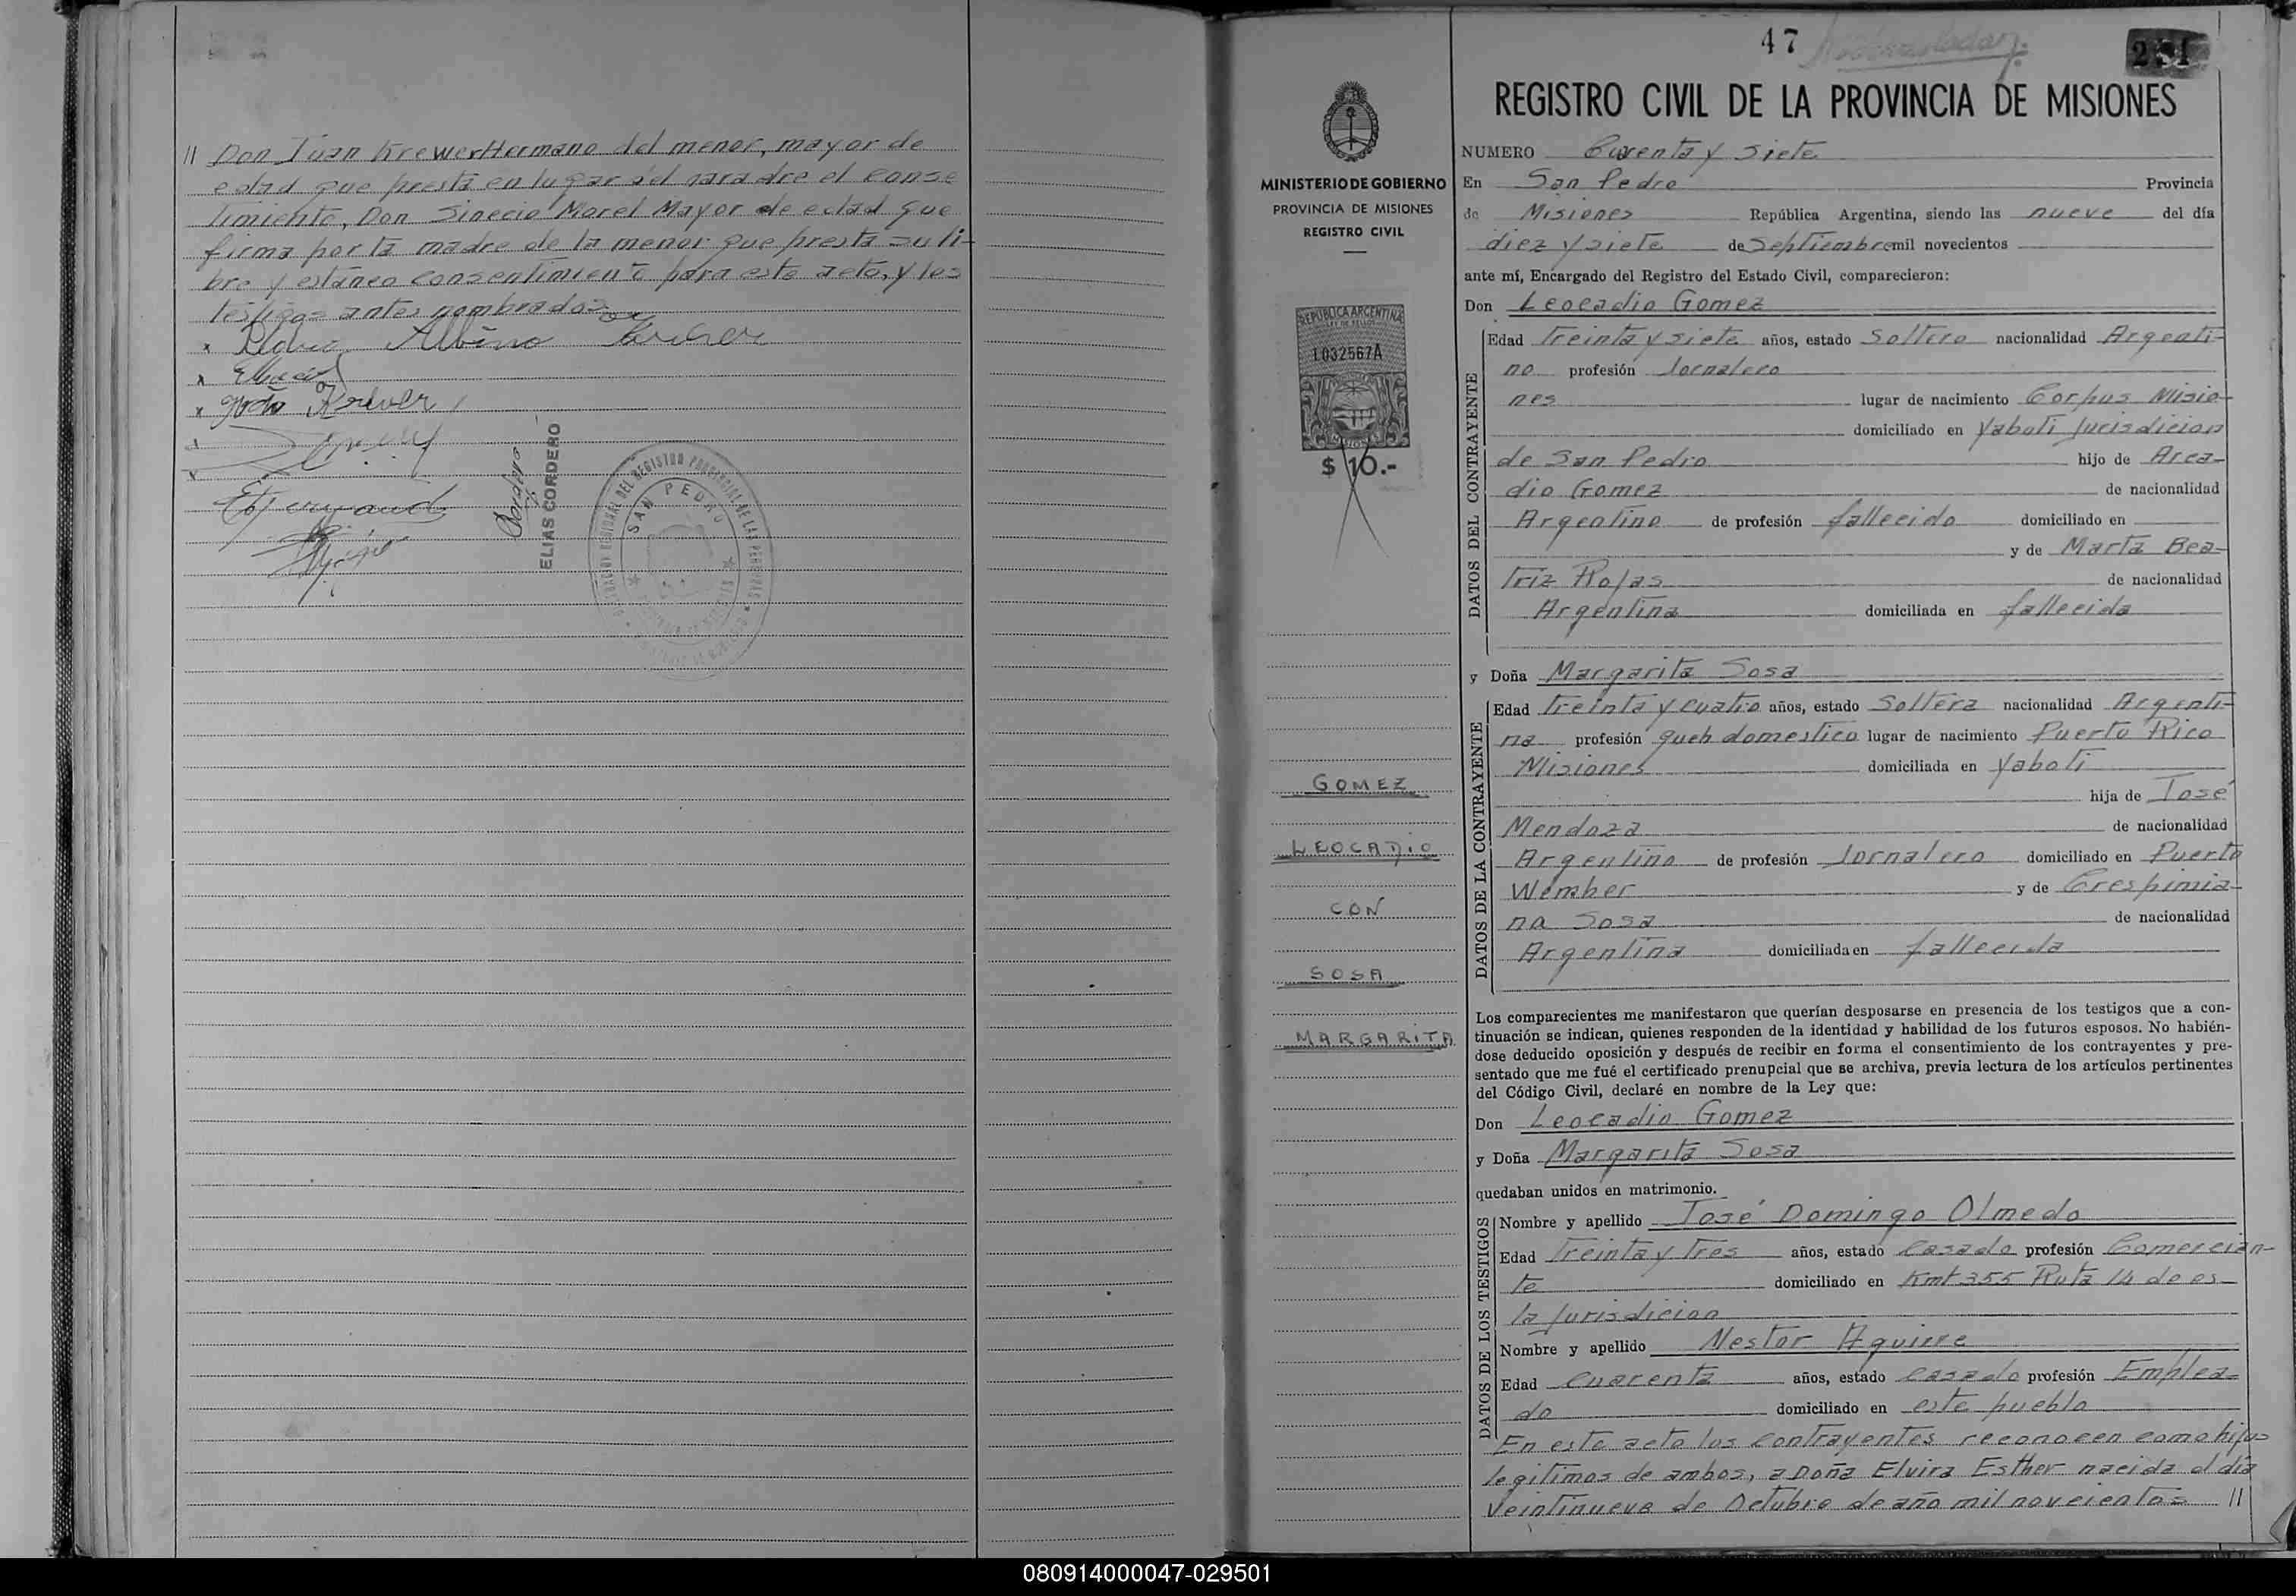 // Don Juan Krewer Hermano del menor, mayor de
edad que presta en lugar del padre el conse
timiento, Don Sinecio Morel Mayor de edad que
firma por la madre de la menor que presta su li-
bre y estáneo consentimiento para este acto, y los
testigos antes nombrados
x Pedro Albino Kreber
x
x João Krever
ELIAS CORDERO
SAN PEDRO
47
251
REGISTRO CIVIL DE LA PROVINCIA DE MISIONES
MINISTERIO DE GOBIERNO
PROVINCIA DE MISIONES
REGISTRO CIVIL
REPUBLICA ARGENTINA
LEY DE SELLOS
1032567A
MISIONES
$ 10.-
GOMEZ
LEOCADIO
CON
SOSA
MARGARITA
NUMERO Curenta y siete
En San Pedro Provincia
de Misiones República Argentina, siendo las nueve del día
diez y siete de Septiembre mil novecientos
ante mí, Encargado del Registro del Estado Civil, comparecieron:
Don Leocadio Gomez
DATOS DEL CONTRAYENTE
Edad treinta y siete años, estado Soltero nacionalidad Argenti-
no profesión Jornalero
nes lugar de nacimiento Corpus Misio-
domiciliado en Yaboti Jurisdicion
de San Pedro hijo de Arca-
dio Gomez de nacionalidad
Argentino de profesión fallecido domiciliado en
y de Marta Bea-
triz Rojas de nacionalidad
Argentina domiciliada en fallecida
y Doña Margarita Sosa
DATOS DE LA CONTRAYENTE
Edad treinta y cuatro años, estado Soltera nacionalidad Argenti-
na profesión queh domestico lugar de nacimiento Puerto Rico
Misiones domiciliada en Yaboti
hija de José
Mendoza de nacionalidad
Argentino de profesión Jornalero domiciliado en Puerto
Wember y de Crespinia-
na Sosa de nacionalidad
Argentina domiciliada en fallecida
Los comparecientes me manifestaron que querían desposarse en presencia de los testigos que a con-
tinuación se indican, quienes responden de la identidad y habilidad de los futuros esposos. No habién-
dose deducido oposición y después de recibir en forma el consentimiento de los contrayentes y pre-
sentado que me fué el certificado prenupcial que se archiva, previa lectura de los artículos pertinentes
del Código Civil, declaré en nombre de la Ley que:
Don Leocadio Gomez
y Doña Margarita Sosa
quedaban unidos en matrimonio.
DATOS DE LOS TESTIGOS
Nombre y apellido José Domingo Olmedo
Edad Treinta y Tres años, estado Casado profesión Comercian-
te domiciliado en Kmt 355 Ruta 14 de es-
ta Jurisdicion
Nombre y apellido Nestor Aguirre
Edad Cuarenta años, estado casado profesión Emplea-
do domiciliado en este pueblo
En este acto los contrayentes reconocen como hijos
legitimos de ambos, a Doña Elvira Esther nacida el día
veintinueve de Octubre de año mil novecientos //
080914000047-029501